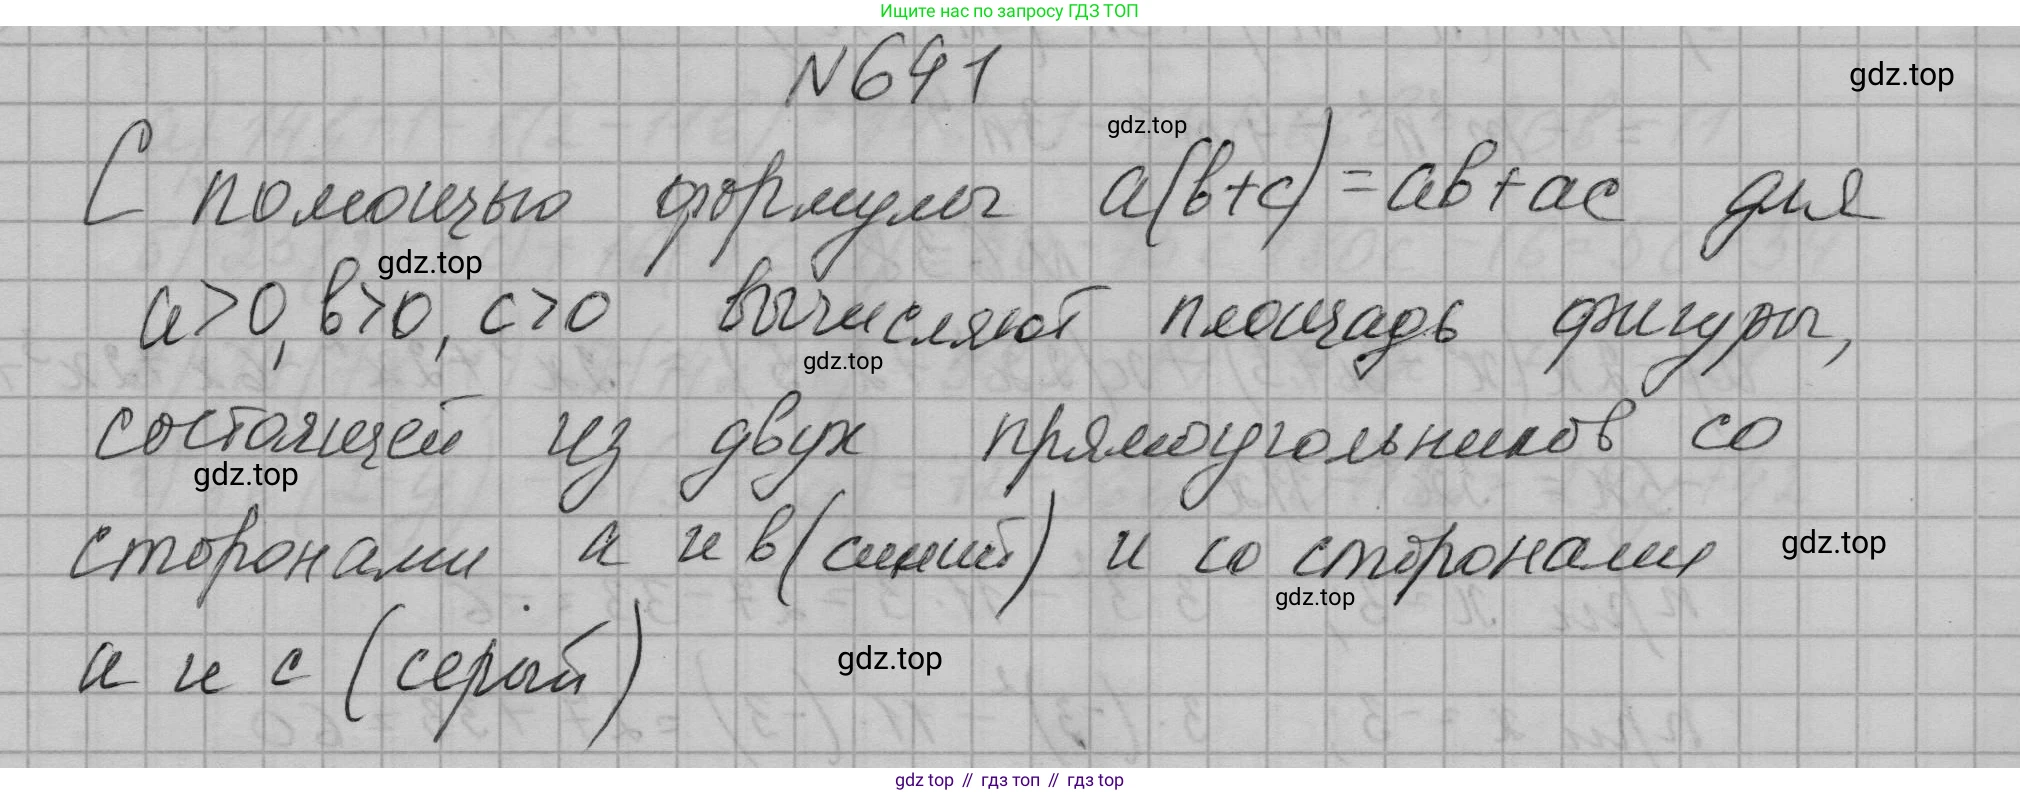 Ищите нас по запросу ГДЗ ТОП
№641
gdz.top
gdz.top
С помощью формулы a(b+c)=ab+ac для
gdz.top
a>0, b>0, c>0 вычисляют площадь фигуры,
gdz.top
состоящей из двух прямоугольников со
gdz.top
сторонами a и b (синий) и со сторонами
gdz.top
gdz.top
a и c (серый)
gdz.top
gdz top // гдз топ // гдз top